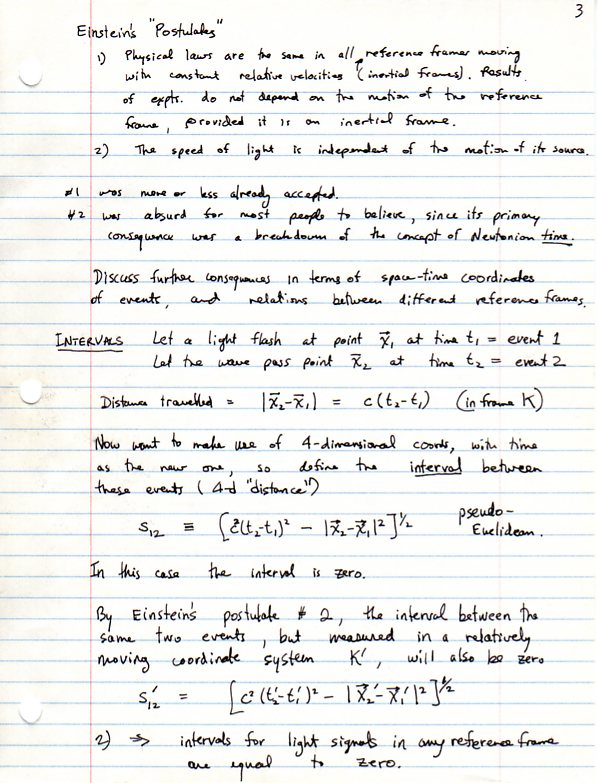 3
Einstein's "Postulates"
1) Physical laws are the same in all reference frames moving
with constant relative velocities (inertial frames). Results
of expts. do not depend on the motion of the reference
frame, provided it is an inertial frame.
2) The speed of light is independent of the motion of its source.
#1 was more or less already accepted.
#2 was absurd for most people to believe, since its primary
consequence was a breakdown of the concept of Newtonian time.
Discuss further consequences in terms of space-time coordinates
of events, and relations between different reference frames.
INTERVALS Let a light flash at point x⃗₁ at time t₁ = event 1
Let the wave pass point x⃗₂ at time t₂ = event 2
Distance travelled = |x⃗₂-x⃗₁| = c(t₂-t₁) (in frame K)
Now want to make use of 4-dimensional coords, with time
as the new one, so define the interval between
these events (4-d "distance")
S₁₂ ≡ [c²(t₂-t₁)² - |x⃗₂-x⃗₁|²]^½ pseudo-
Euclidean.
In this case the interval is zero.
By Einstein's postulate #2, the interval between the
same two events, but measured in a relatively
moving coordinate system K', will also be zero
S₁₂' = [c²(t₂'-t₁')² - |x⃗₂'-x⃗₁'|²]^½
2) ⇒ intervals for light signals in any reference frame
are equal to zero.